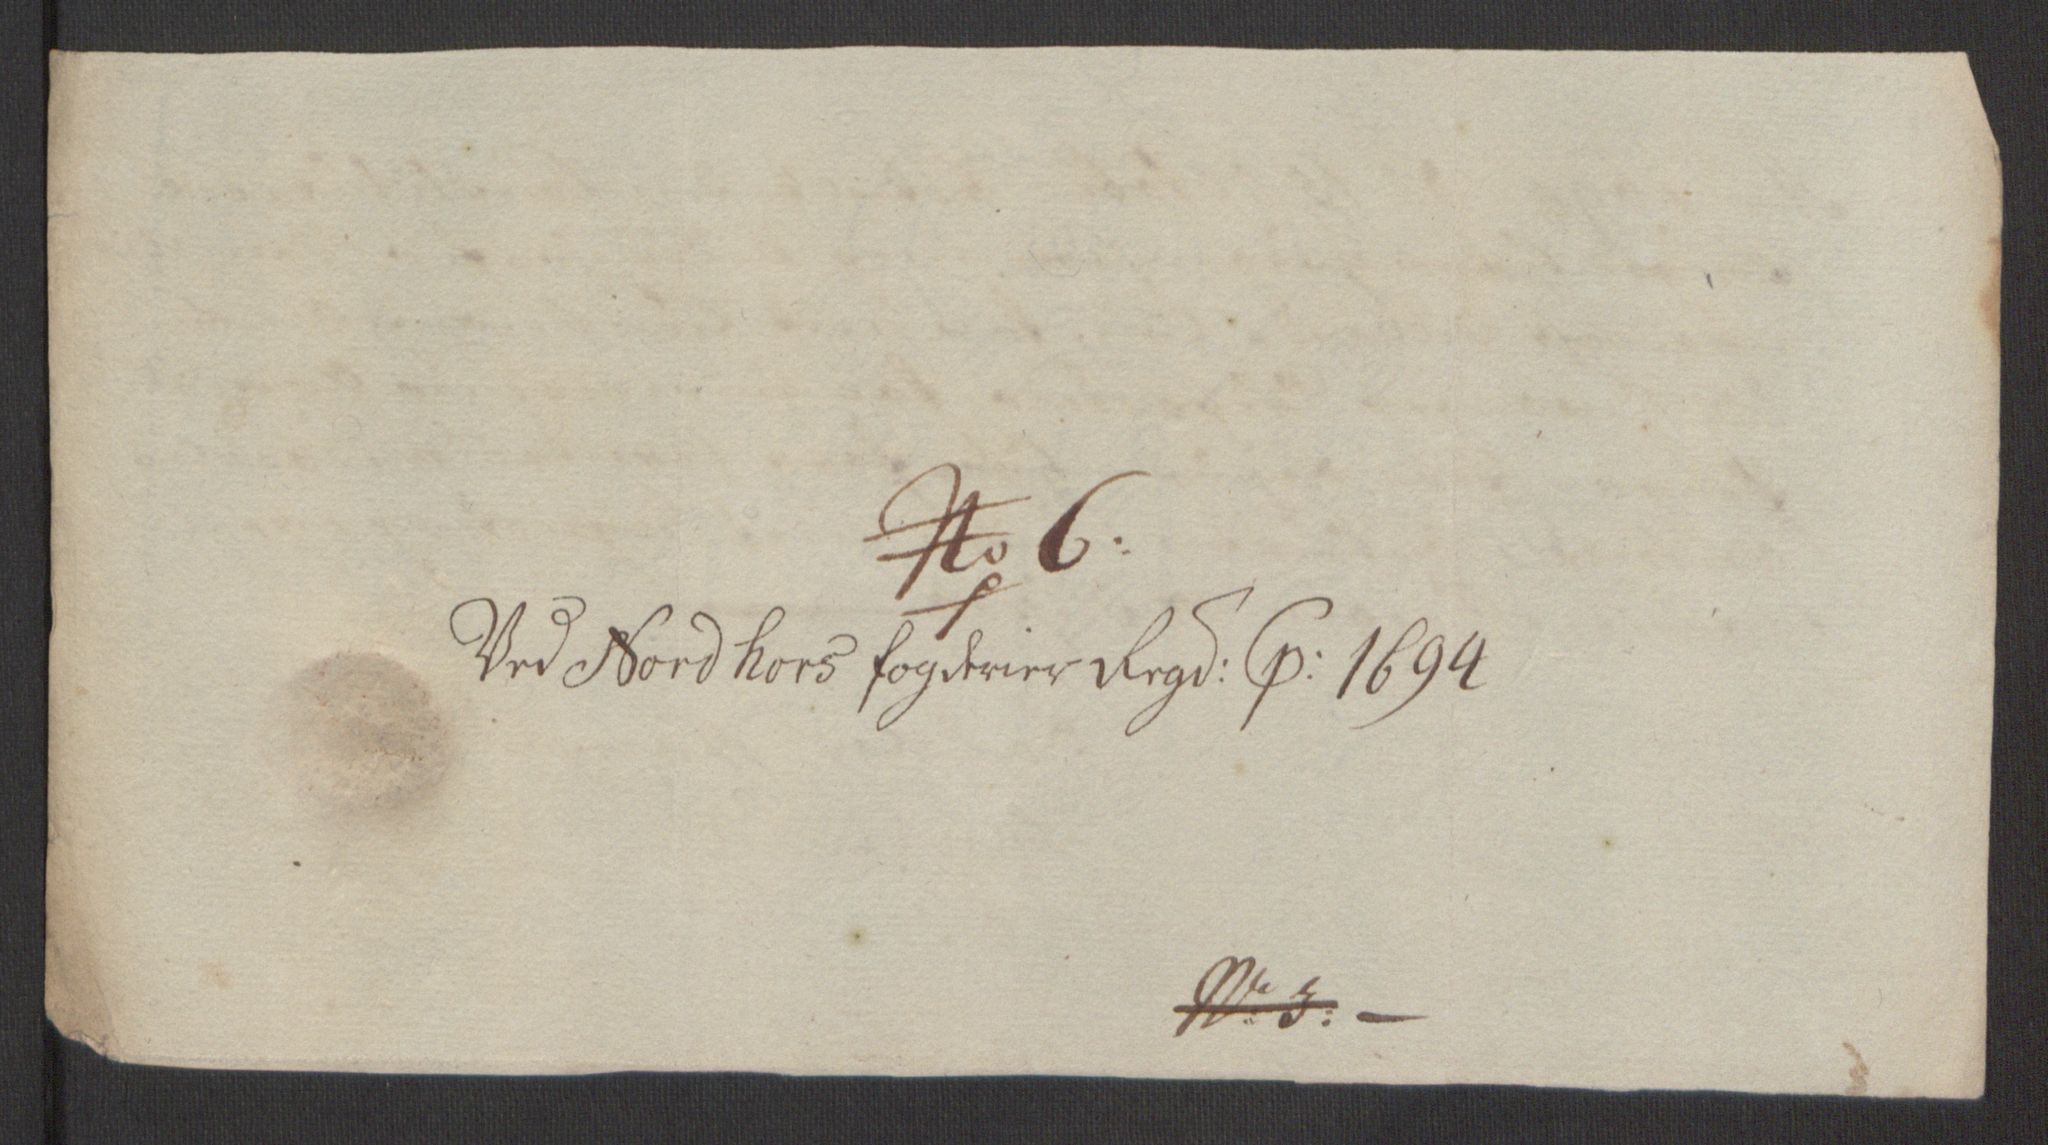 No 6:
Ved Nordhors fogderier Regd: P: 1694
N: 3: —